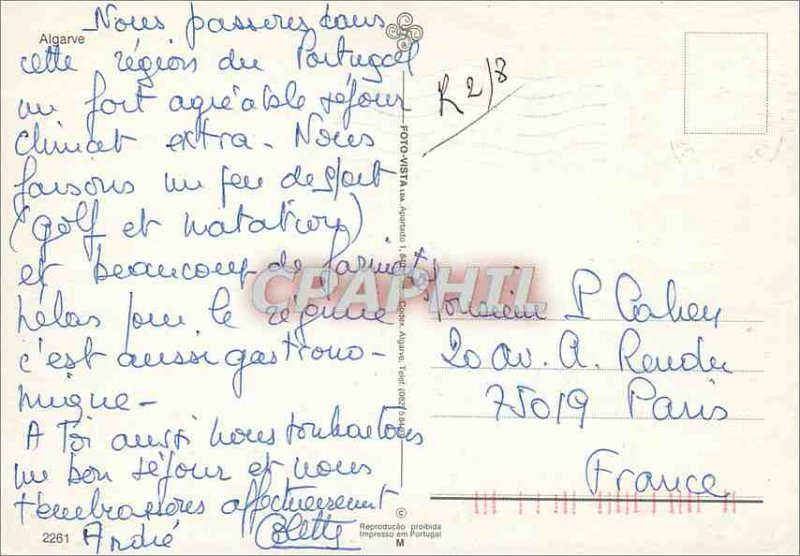 Algarve
Nous passons dans
cette région du Portugal
un fort agréable séjour
climat extra - Nous
faisons un peu de sport
(golf et natation)
et beaucoup de
hélas pour le régime
c'est aussi gastrono-
mique -
A Toi aussi nous souhaitons
un bon séjour et nous
t'embrassons affectueusement
André Colette
2261
FOTO-VISTA LDA. Apartado 1, Codex, Algarve, Telef.
CPAPHIL
R 2/8
Monsieur P Cahen
20 Av. A. Rendu
75019 Paris
France
©
Reprodução proibida
Impresso em Portugal
M